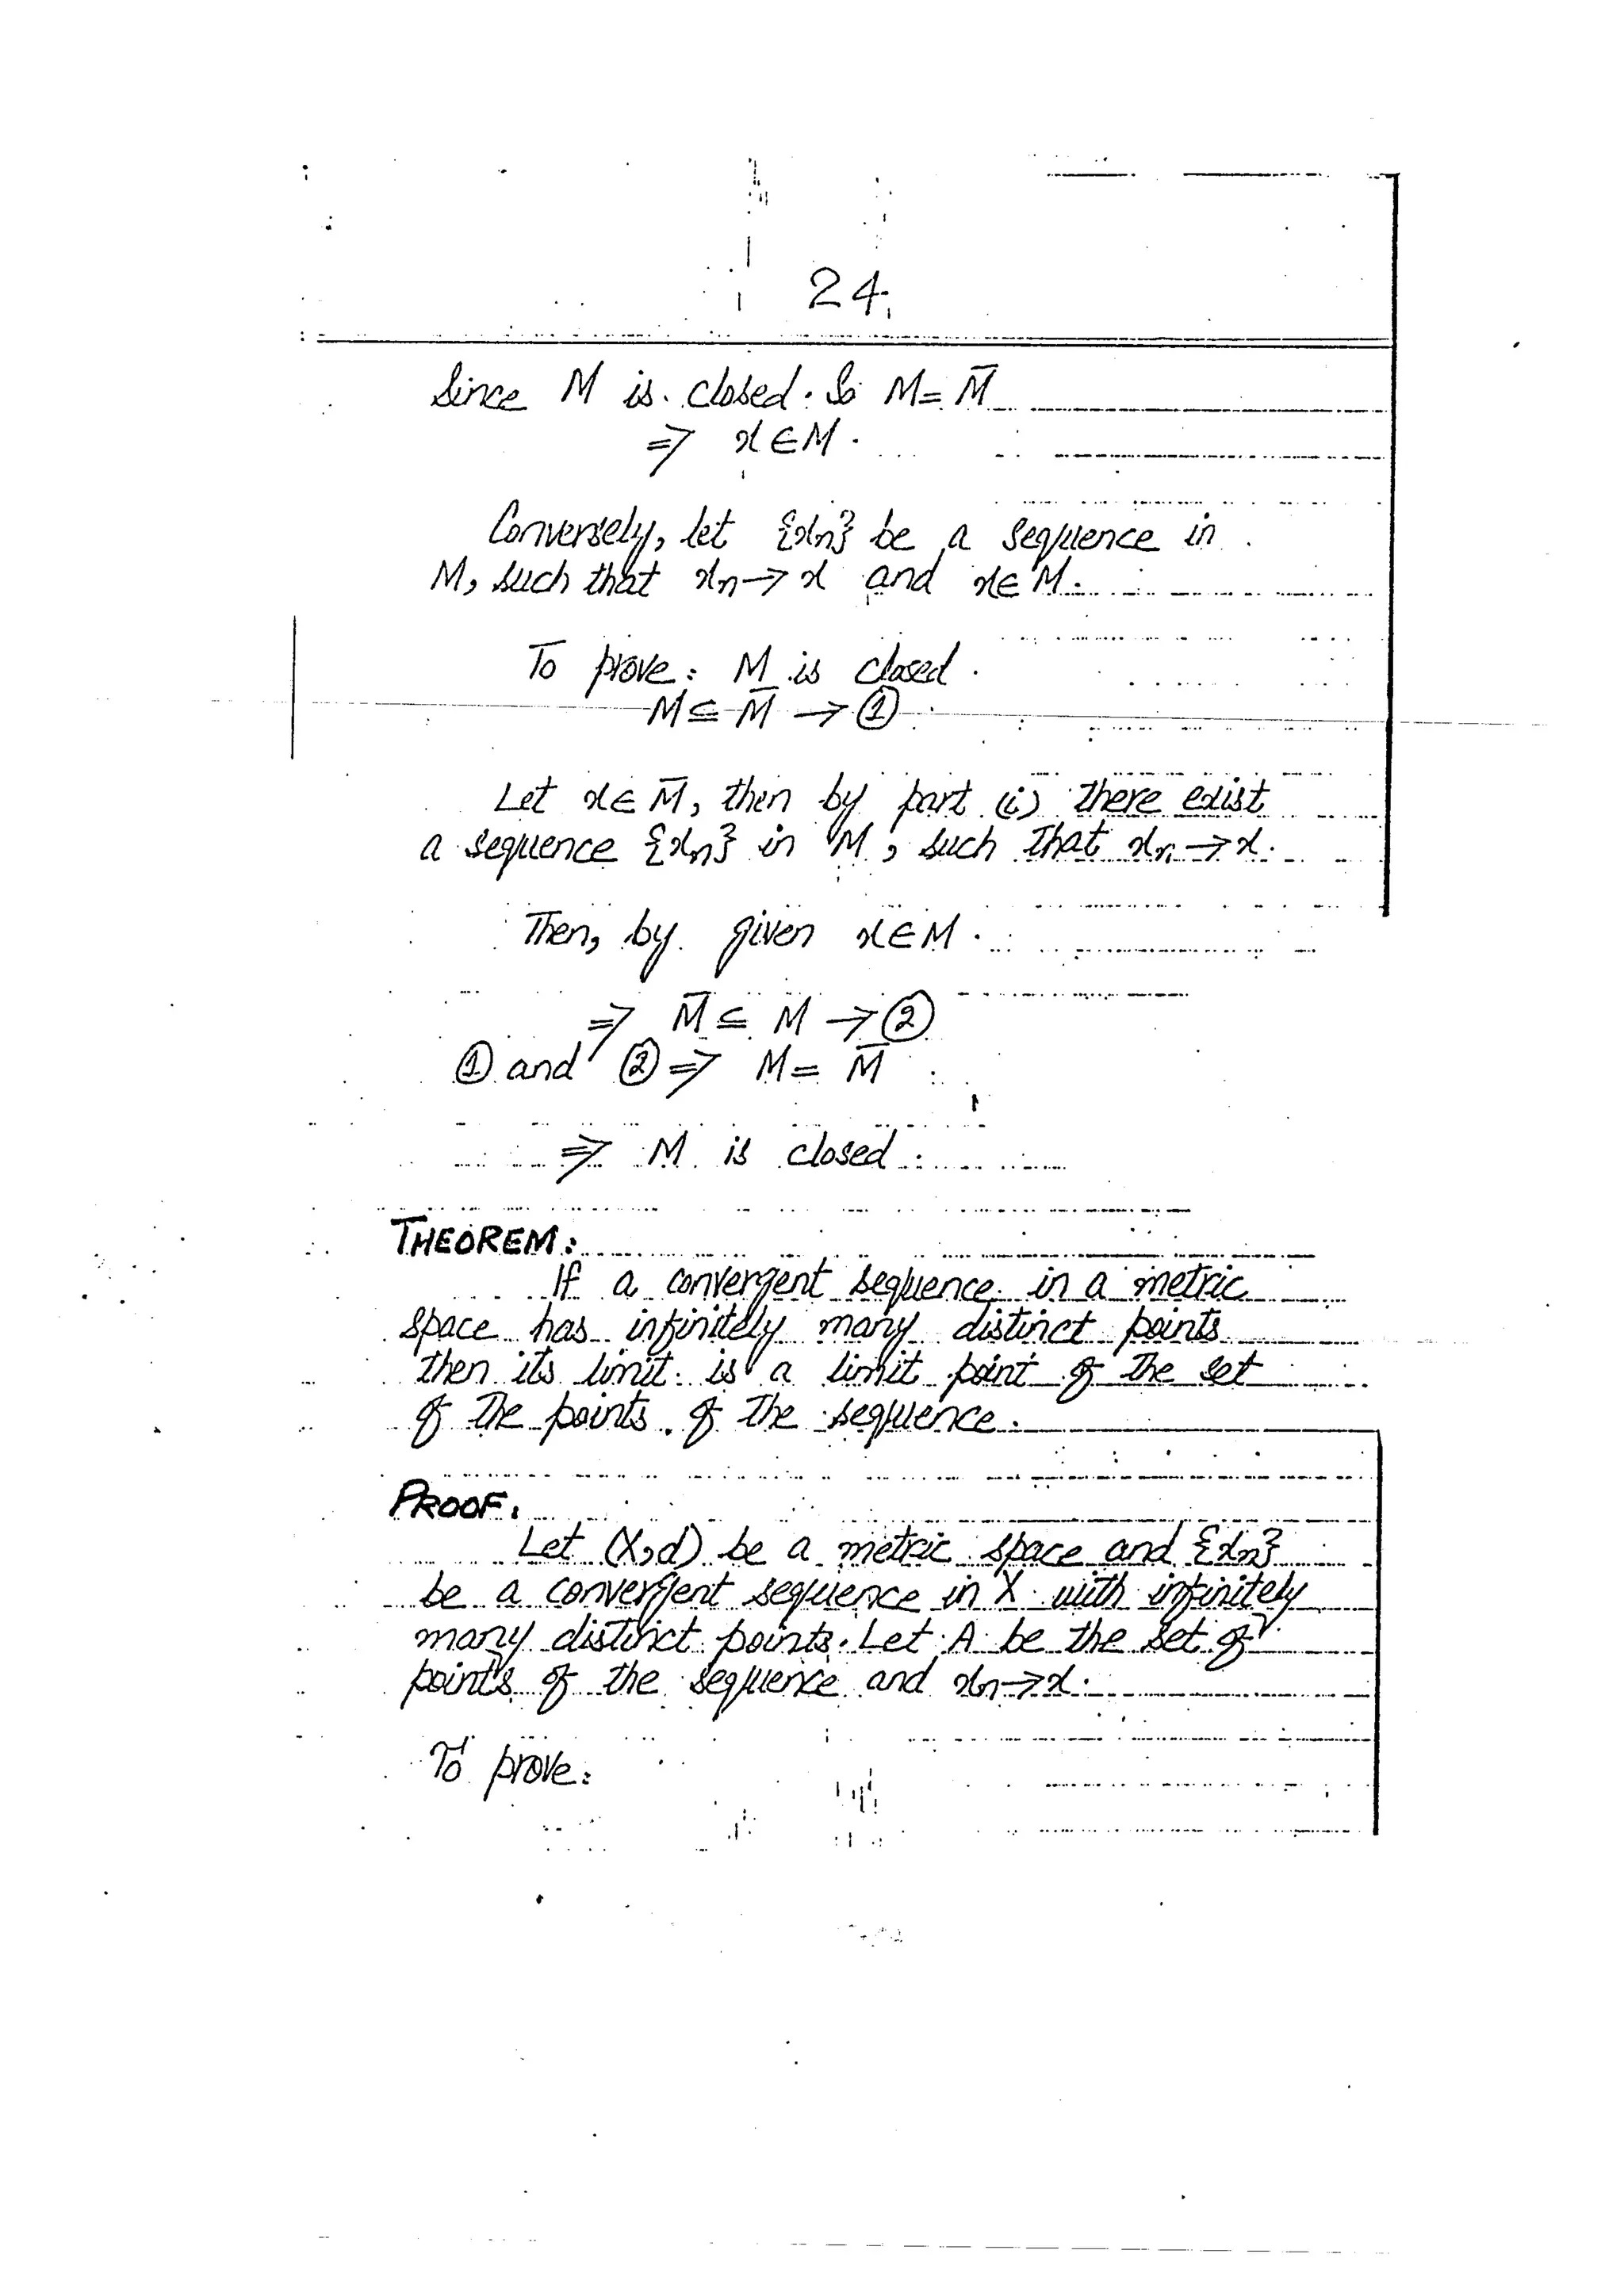 24.
Since M is closed. So M = M̅
⇒ x ∈ M.
Conversely, let {xn} be a sequence in
M, such that xn → x and x ∈ M.
To prove: M is closed.
M ⊆ M̅ → ①
Let x ∈ M̅, then by part (i) there exist
a sequence {xn} in M, such that xn → x.
Then, by given x ∈ M.
⇒ M̅ ⊆ M → ②
① and ② ⇒ M = M̅
⇒ M is closed.
THEOREM:
If a convergent sequence in a metric
space has infinitely many distinct points
then its limit is a limit point of the set
of the points of the sequence.
PROOF.
Let (X,d) be a metric space and {xn}
be a convergent sequence in X with infinitely
many distinct points. Let A be the set of
points of the sequence and xn → x.
To prove: